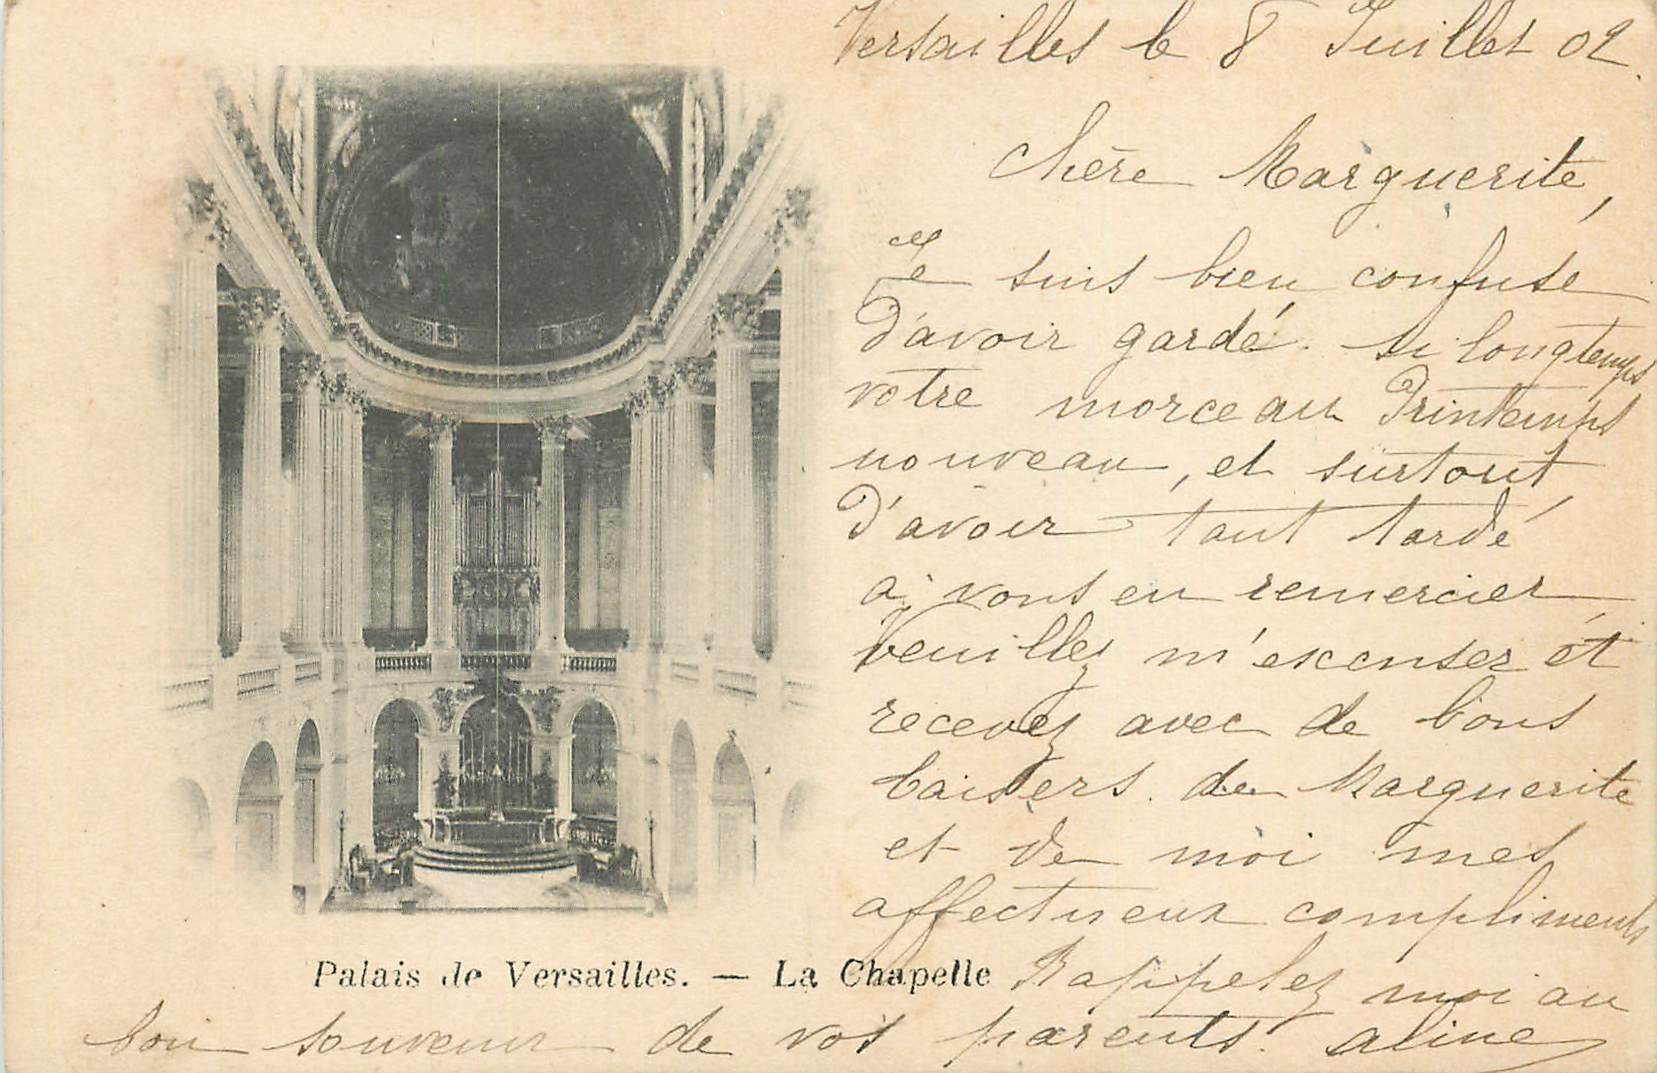 Versailles le 8 Juillet 02.
Chère Marguerite,
Je suis bien confuse
d'avoir gardé si longtemps
votre morceau Printemps
nouveau, et surtout
d'avoir tant tardé
à vous en remercier
Veuillez m'excuser et
recevez avec de bons
baisers de Marguerite
et de moi mes
affectueux compliments
Palais de Versailles. — La Chapelle
Rappelez moi au
bon souvenir de vos parents. Aline